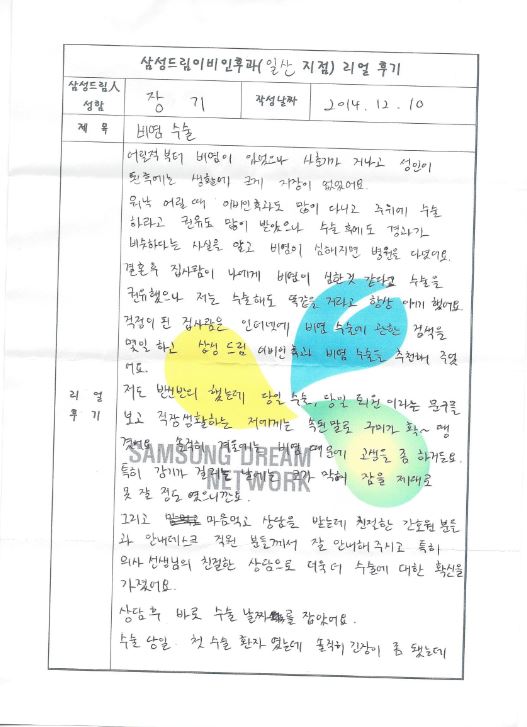 삼성드림이비인후과(일산 지점) 리얼 후기
삼성드림人
성함
장 기
작성날짜
2014. 12. 10
제 목
비염 수술
리 얼
후 기
어릴적부터 비염이 있었으나 사춘기가 지나고 성인이
된후에는 생활에 크게 지장이 없었어요.
워낙 어릴 때 이비인후과도 많이 다니고 주위에 수술
하라고 권유도 많이 받았으나 수술 후에도 경과가
비슷하다는 사실을 알고 비염이 심해지면 병원을 다녔어요.
결혼후 집사람이 나에게 비염이 심한것 같다고 수술을
권유했으나 저는 수술해도 똑같을 거라고 항상 얘기 했어요.
걱정이 된 집사람은 인터넷에 비염 수술에 관한 검색을
몇일 하고 삼성 드림 이비인후과 비염 수술을 추천해 주었
어요.
저도 반신반의 했는데 당일 수술, 당일 퇴원 이라는 문구를
보고 직장생활하는 저에게는 속된말로 구미가 확~ 땡
겼어요 솔직히 겨울에는 비염 때문에 고생을 좀 하거든요.
특히 감기가 걸려는 날에는 코가 막혀 잠을 제대로
못 잘 정도 였으니깐요.
그리고 마음먹고 상담을 받는데 친절한 간호원 분들
과 안내데스크 직원 분들께서 잘 안내해 주시고 특히
의사 선생님의 친절한 상담으로 더욱 더 수술에 대한 확신을
가졌어요.
상담 후 바로 수술 날짜를 잡았어요.
수술 당일. 첫 수술 환자 였는데 솔직히 긴장이 좀 됐는데
SAMSUNG DREAM
NETWORK